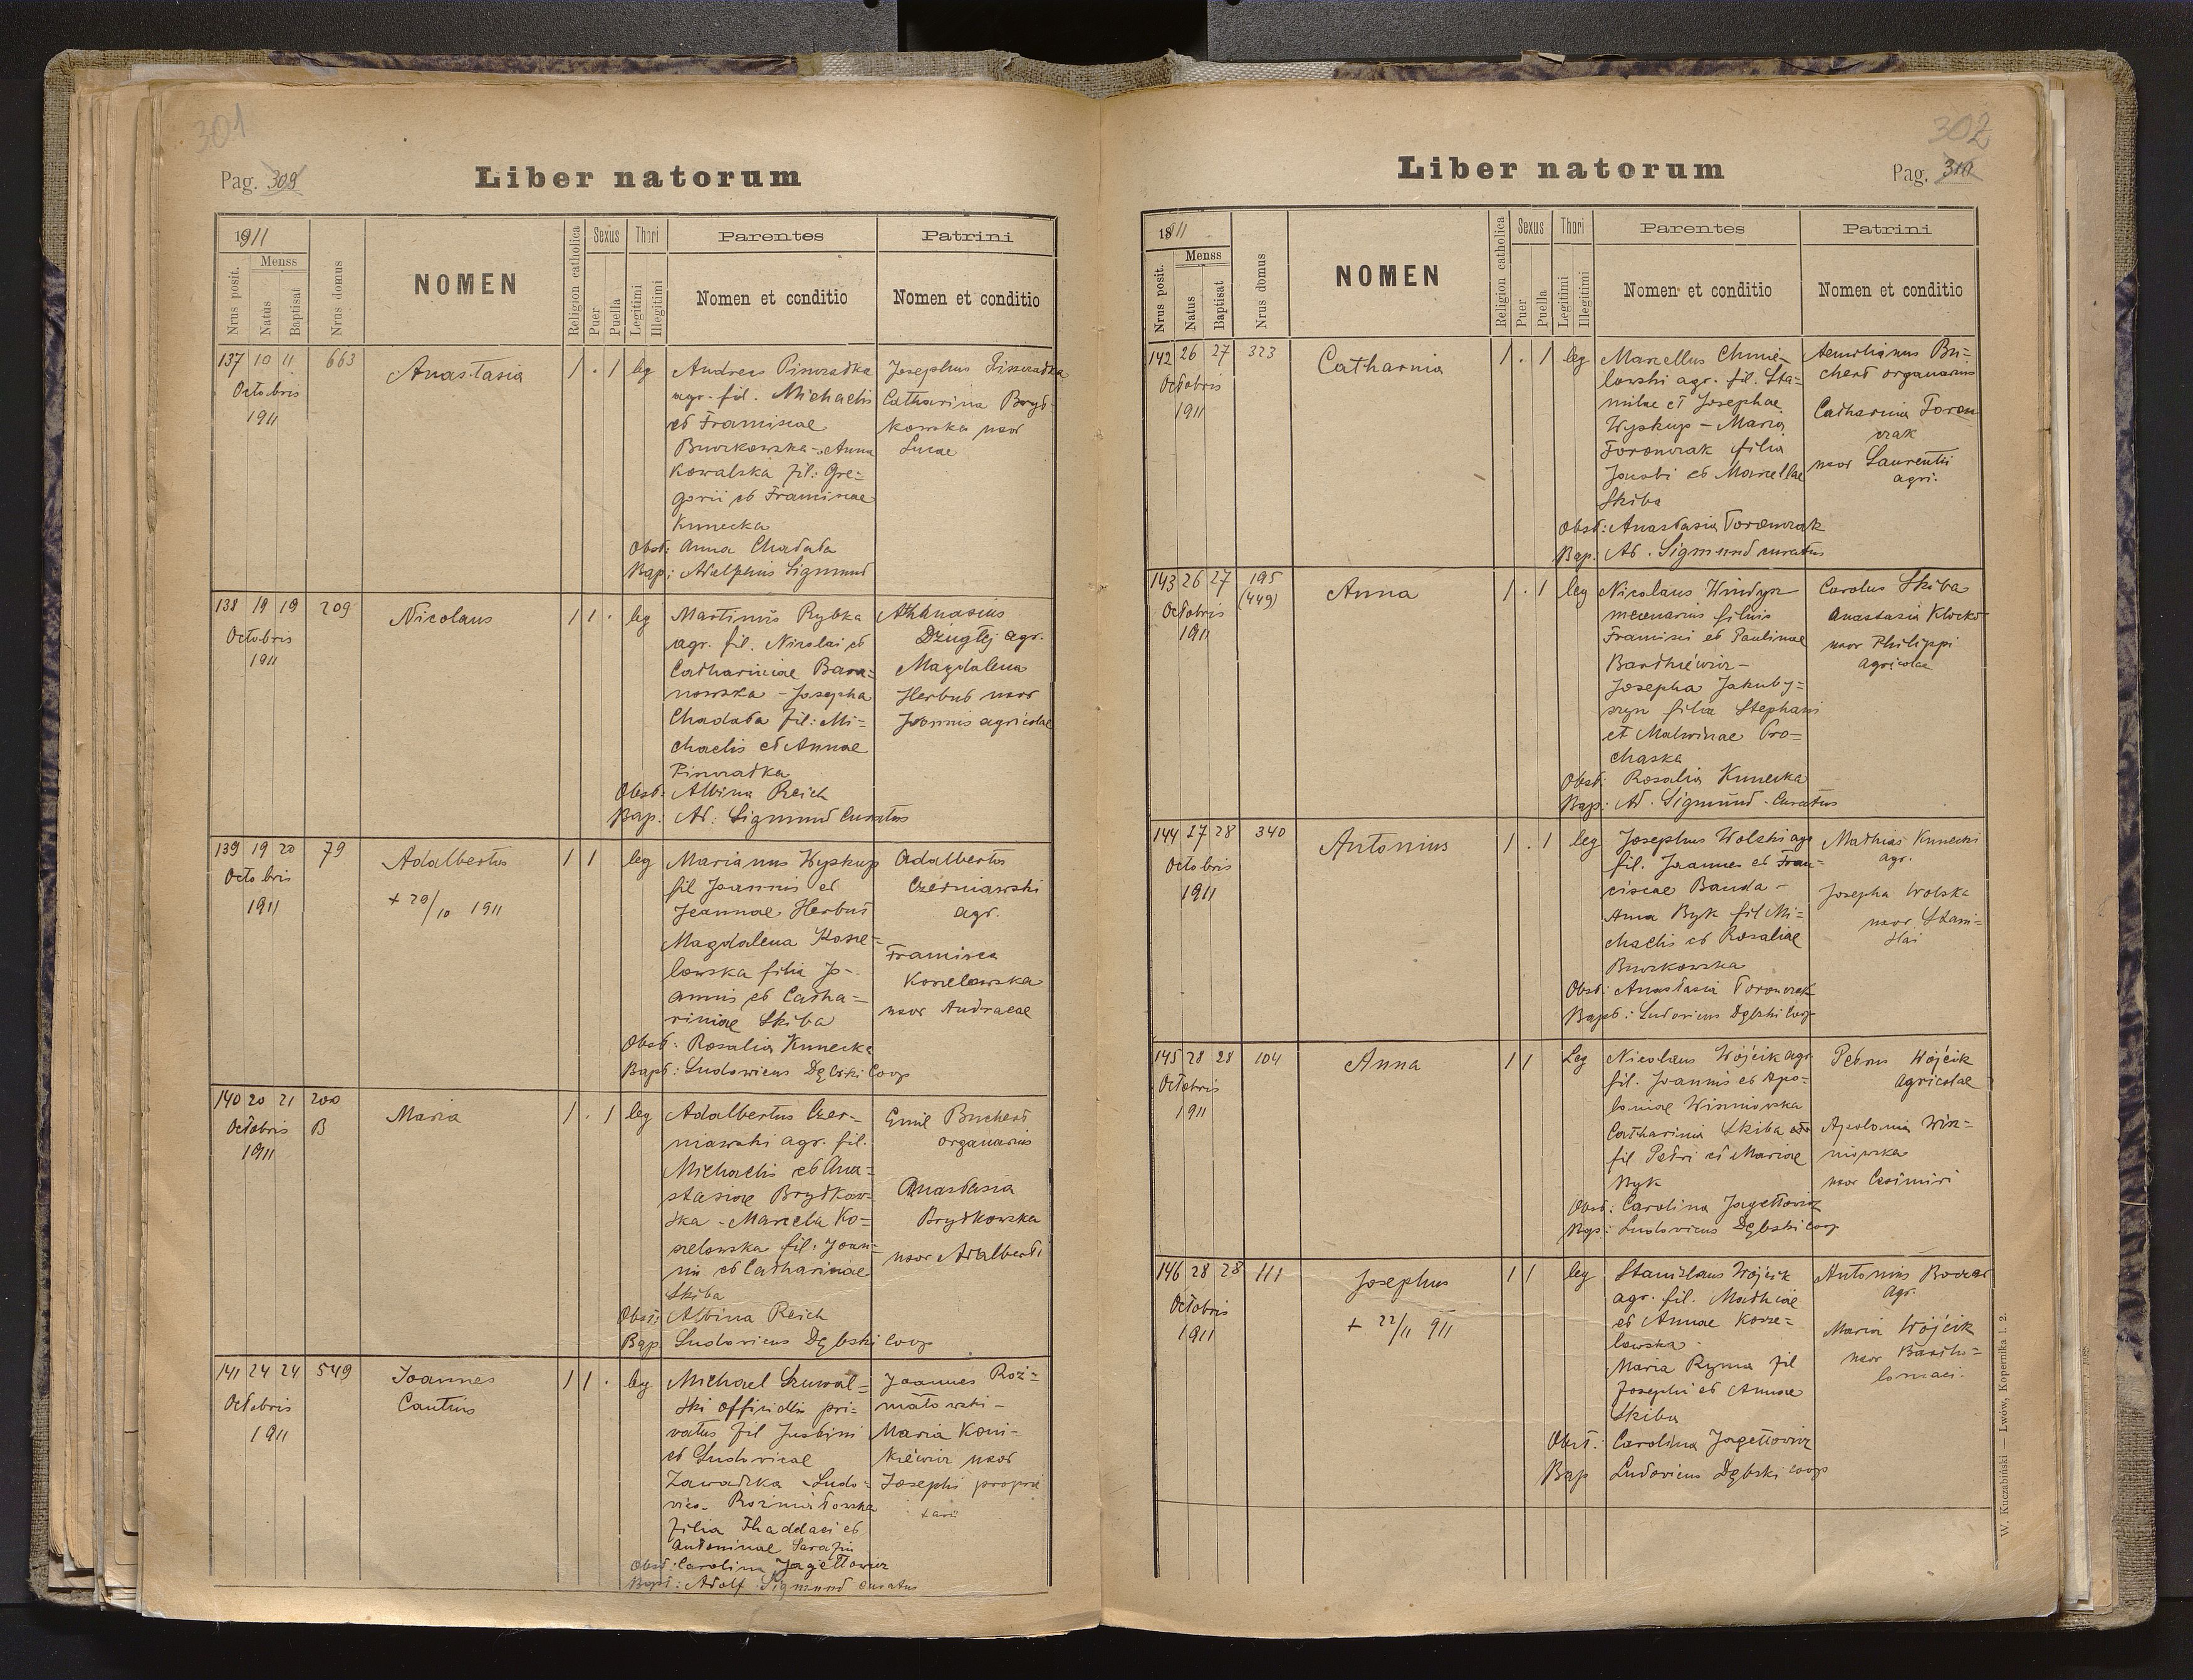 301
Pag. 309
Liber natorum
1911
Menss
Nrus posit.
Natus
Baptisat
Nrus domus
NOMEN
Religion catholica
Sexus
Puer
Puella
Thori
Legitimi
Illegitimi
Parentes
Nomen et conditio
Patrini
Nomen et conditio
137 10 11 663
Octobris
1911
Anastasia
1 . 1 leg
Andreas Pinoradka
agr. fil. Michaelis
et Franciscae
Burzkowska - Anna
Kowalska fil: Gre=
gorii et Franciscae
Kunecka
Obst: Anna Chadada
Bap: Adelphus Sigmund
Josephus
Catharina Bryd-
kowska uxor
Lucae
138 19 19 209
Octobris
1911
Nicolaus
1 1 . leg
Martinus Rybka
agr. fil. Nicolai et
Catharinae Bara=
nowska - Josepha
Chadada fil: Mi=
chaelis et Annae
Obst: Albina Reich
Bap: Ad: Sigmund Curatus
Athanasius
Dziugłej agr.
Magdalena
Herbut uxor
Joannis agricolae
139 19 20 79
Octobris
1911
Adalbertus
+ 29/10 1911
1 1 leg
Marianus Wyskup
fil Joannis et
Joannae Herbut
Magdalena Korze=
lowska filia Jo-
annis et Catha=
rinae Skiba
Obst: Rosalia Kunecka
Bapt: Ludovicus Dębski Coop
Adalbertus
Czerniawski
agr.
Francisca
Korzelowska
uxor Andraeae
140 20 21 200
Octobris B
1911
Maria
1 . 1 leg
Adalbertus Czer-
niawski agr. fil.
Michaelis et Ana=
stasiae Brydkow=
ska - Marcela Ko=
rzelowska fil. Joan=
nis et Catharinae
Skiba
Obst: Albina Reich
Bap Ludovicus Dębski Coop
Emil Buchert
organarius
Anastasia
Brydkowska
uxor Adalberti
141 24 24 549
Octobris
1911
Joannes
Cantius
1 1 . leg
Michael Szuwal=
ski officialis pri=
vatus fil Justini
et Ludovicae
Zawadzka - Ludo=
vica Rozmiatowska
filia Thaddaei et
Antoninae Sarafin
Obst: Carolina Jagiełłowicz
Bapt: Adolf Sigmund curatus
Joannes Roz=
miatowski -
Maria Koni=
kiewicz uxor
Josephi proprie
tarii
302
Liber natorum
Pag. 310
1811
Menss
Nrus posit.
Natus
Baptisat
Nrus domus
NOMEN
Religion catholica
Sexus
Puer
Puella
Thori
Legitimi
Illegitimi
Parentes
Nomen et conditio
Patrini
Nomen et conditio
142 26 27 323
Octobris
1911
Catharnia
1 . 1 leg
Marcellus Chmie-
lowski agr. fil. Sta=
nislae et Josephae
Wyskup - Maria
Toronczak filia
Jacobi et Marcellae
Skiba
Obst: Anastasia Toronczak
Bap: Ad. Sigmund curatus
Aemilianus Bu=
chert organarius
Catharina Toron
czak
uxor Laurentii
agri.
143 26 27 195
(449)
Octobris
1911
Anna
1 . 1 leg
Nicolaus Windys
mercenarius filius
Francisci et Paulinae
Bartkiewicz -
Josepha Jakuby=
szyn filia Stephani
et Malwinae Pro=
chaska
Obst: Rosalia Kunecka
Bap: Ad. Sigmund - Curatus
Carolus Skiba
Anastasia Klocko
uxor Philippi
agricolae
144 27 28 340
Octobris
1911
Antonius
1 . 1 leg
Josephus Wolski agr
fil. Joannes et Fran=
ciscae Banda -
Anna Byk fil Mi=
chaelis et Rosaliae
Burzkowska
Obst: Anastasia Toronczak
Bapt: Ludovicus Dębski Coop
Mathias Kunecki
agr.
Josepha Wolska
uxor Stani=
slai
145 28 28 104
Octobris
1911
Anna
1 1 Leg
Nicolaus Wójcik agr
fil. Joannis et Apo=
loniae Wiśniowska
Catharina Skiba
fil Petri et Mariae
Byk
Obst: Carolina Jagiełłowicz
Bap: Ludovicus Dębski coop
Petrus Wójcik
agricolae
Apolonia Wiś=
niowska
uxor Casimiri
146 28 28 111
Octobris
1911
Josephus
+ 22/11 911
1 1 leg
Stanislaus Wójcik
agr. fil. Mathiae
et Annae Korze-
lowska -
Maria Ryma fil
Josephi et Annae
Skiba
Obst: Carolina Jagiełłowicz
Bap Ludovicus Dębski coop
Antonius Boczar
agr.
Maria Wójcik
uxor Bartho=
lomaei.
W. Kuczabiński — Lwów, Kopernika l. 2.